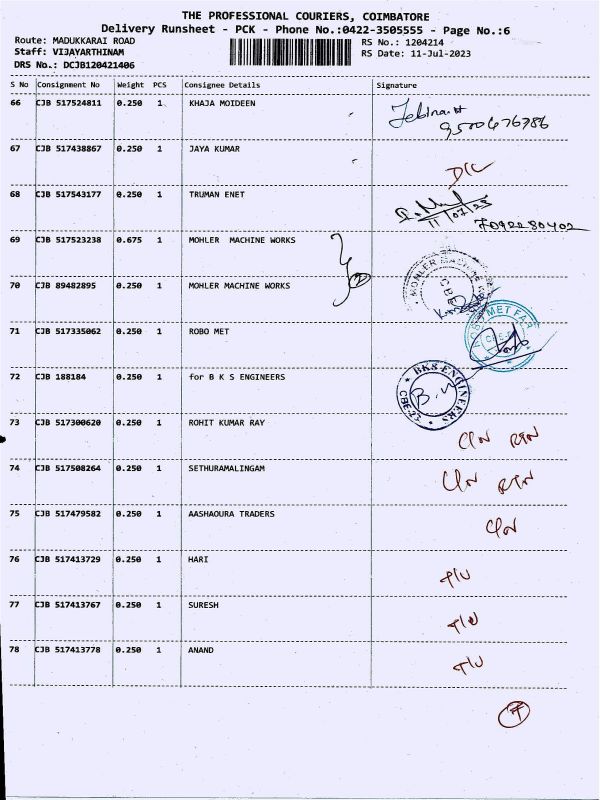 THE PROFESSIONAL COURIERS, COIMBATORE
Delivery Runsheet - PCK - Phone No.:0422-3505555 - Page No.:6
Route: MADUKKARAI ROAD
Staff: VIJAYARTHINAM
DRS No.: DCJB120421406
RS No.: 1204214
RS Date: 11-Jul-2023
S No Consignment No Weight PCS Consignee Details Signature
66 CJB 517524811 0.250 1 KHAJA MOIDEEN
9500676786
67 CJB 517438867 0.250 1 JAYA KUMAR
D/L
68 CJB 517543177 0.250 1 TRUMAN ENET
11/07/23
7092280402
69 CJB 517523238 0.675 1 MOHLER MACHINE WORKS
2
70 CJB 89482895 0.250 1 MOHLER MACHINE WORKS
MOHLER MACHINE
71 CJB 517335062 0.250 1 ROBO MET
MET FAB
72 CJB 188184 0.250 1 for B K S ENGINEERS
BKS ENGINEERS
CBE-23
73 CJB 517300620 0.250 1 ROHIT KUMAR RAY
C/N RTN
74 CJB 517508264 0.250 1 SETHURAMALINGAM
C/N RTN
75 CJB 517479582 0.250 1 AASHAOURA TRADERS
C/N
76 CJB 517413729 0.250 1 HARI
T/U
77 CJB 517413767 0.250 1 SURESH
T/U
78 CJB 517413778 0.250 1 ANAND
T/U
7